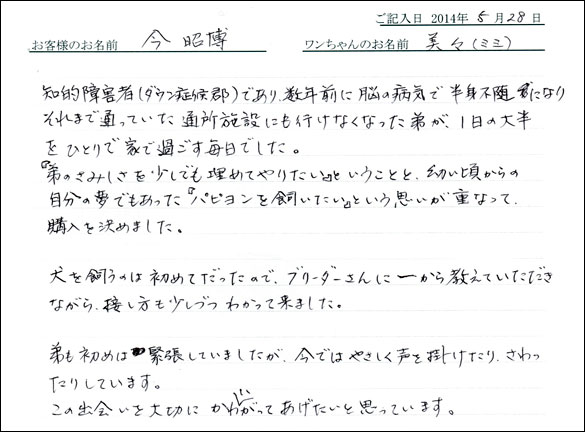 ご記入日 2014年 5月28日
お客様のお名前 今 昭博 ワンちゃんのお名前 美々(ミミ)
知的障害者(ダウン症候郡)であり、数年前に脳の病気で半身不随になり
それまで通っていた通所施設にも行けなくなった弟が、1日の大半
をひとりで家で過ごす毎日でした。
『弟のさみしさを少しでも埋めてやりたい』ということと、幼い頃からの
自分の夢でもあった『パピヨンを飼いたい』という思いが重なって、
購入を決めました。
犬を飼うのは初めてだったので、ブリーダーさんに一から教えていただき
ながら、接し方も少しづつわかって来ました。
弟も初めは緊張していましたが、今ではやさしく声を掛けたり、さわっ
たりしています。
この出会いを大切にかわいがってあげたいと思っています。